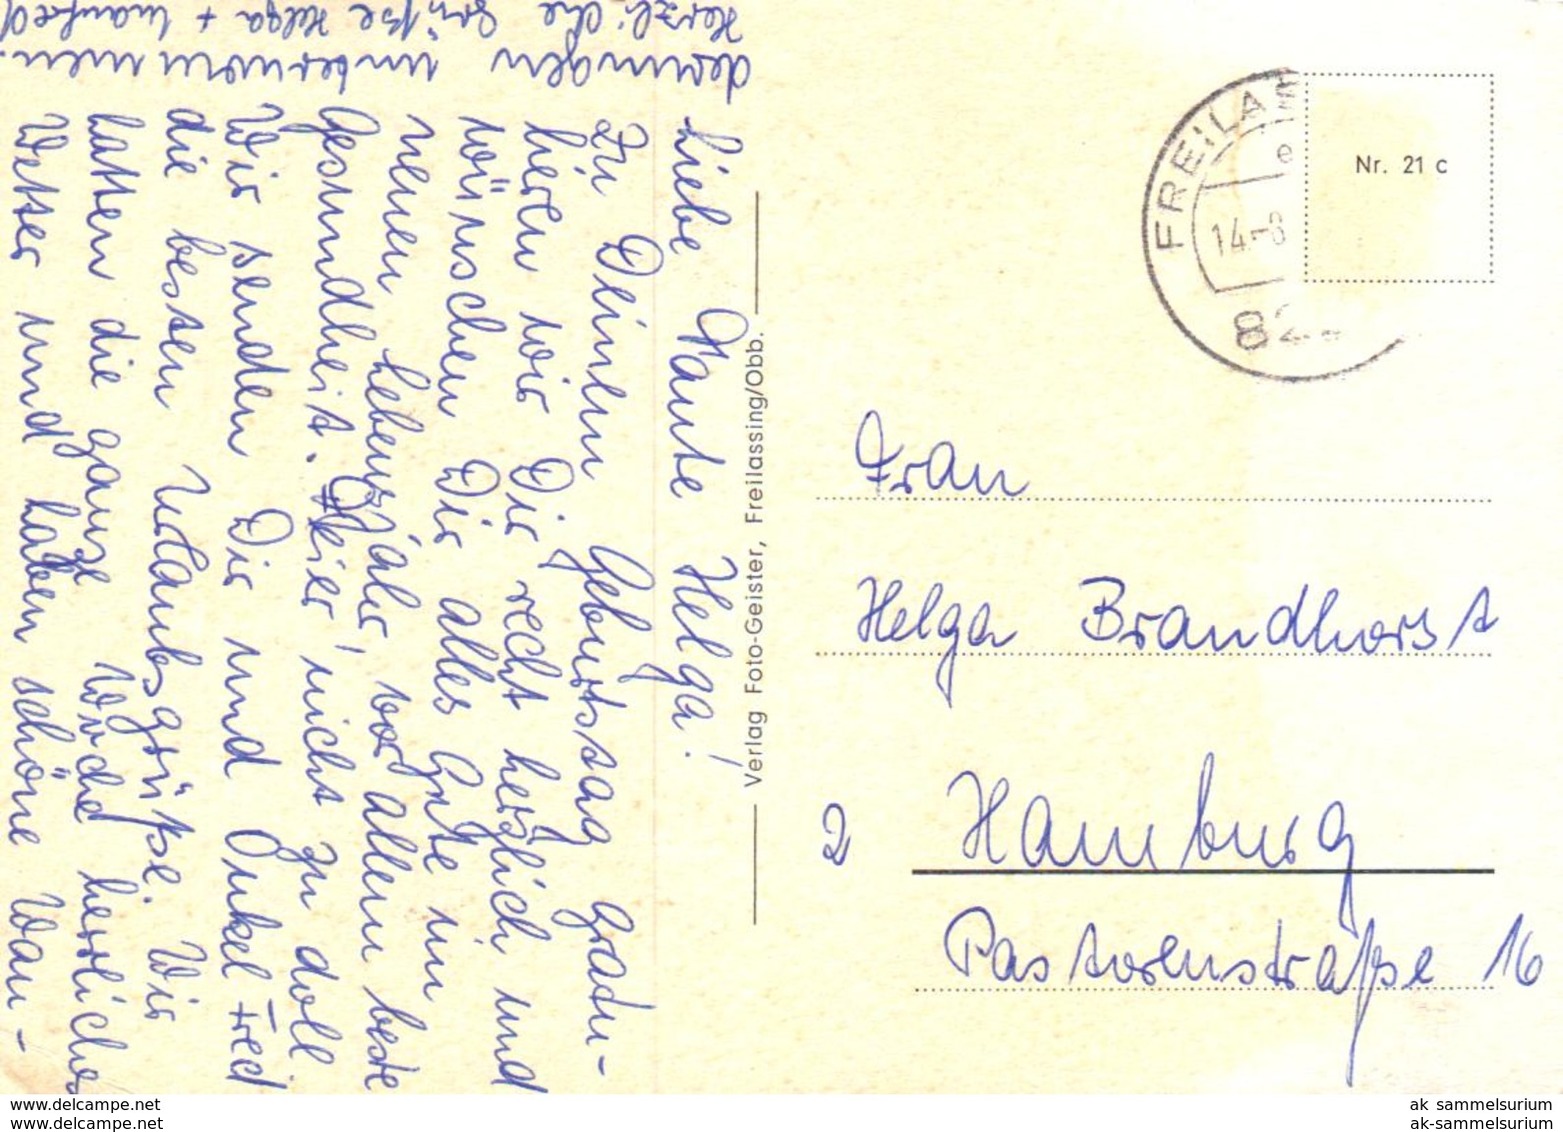 Liebe Tante Helga!
Zu Deinem Geburtstag gradu-
lieren wir Dir recht herzlich und
wünschen Dir alles Gute im
neuen Lebensjahr, vor allem beste
Gesundheit. Feier' nicht zu doll.
Wir senden Dir und Onkel Fred
die besten Urlaubsgrüße. Wir
hatten die ganze Woche herrliches
Wetter und haben schöne Wan-
derungen unternommen.
Herzliche Grüße Helga + Manfred
Verlag Foto-Geister, Freilassing/Obb.
FREILAS
14.-8
82
Nr. 21 c
Frau
Helga Brandhorst
2 Hamburg
Pastorenstraße 16
www.delcampe.net
www.delcampe.net
ak_sammelsurium
ak-sammelsurium